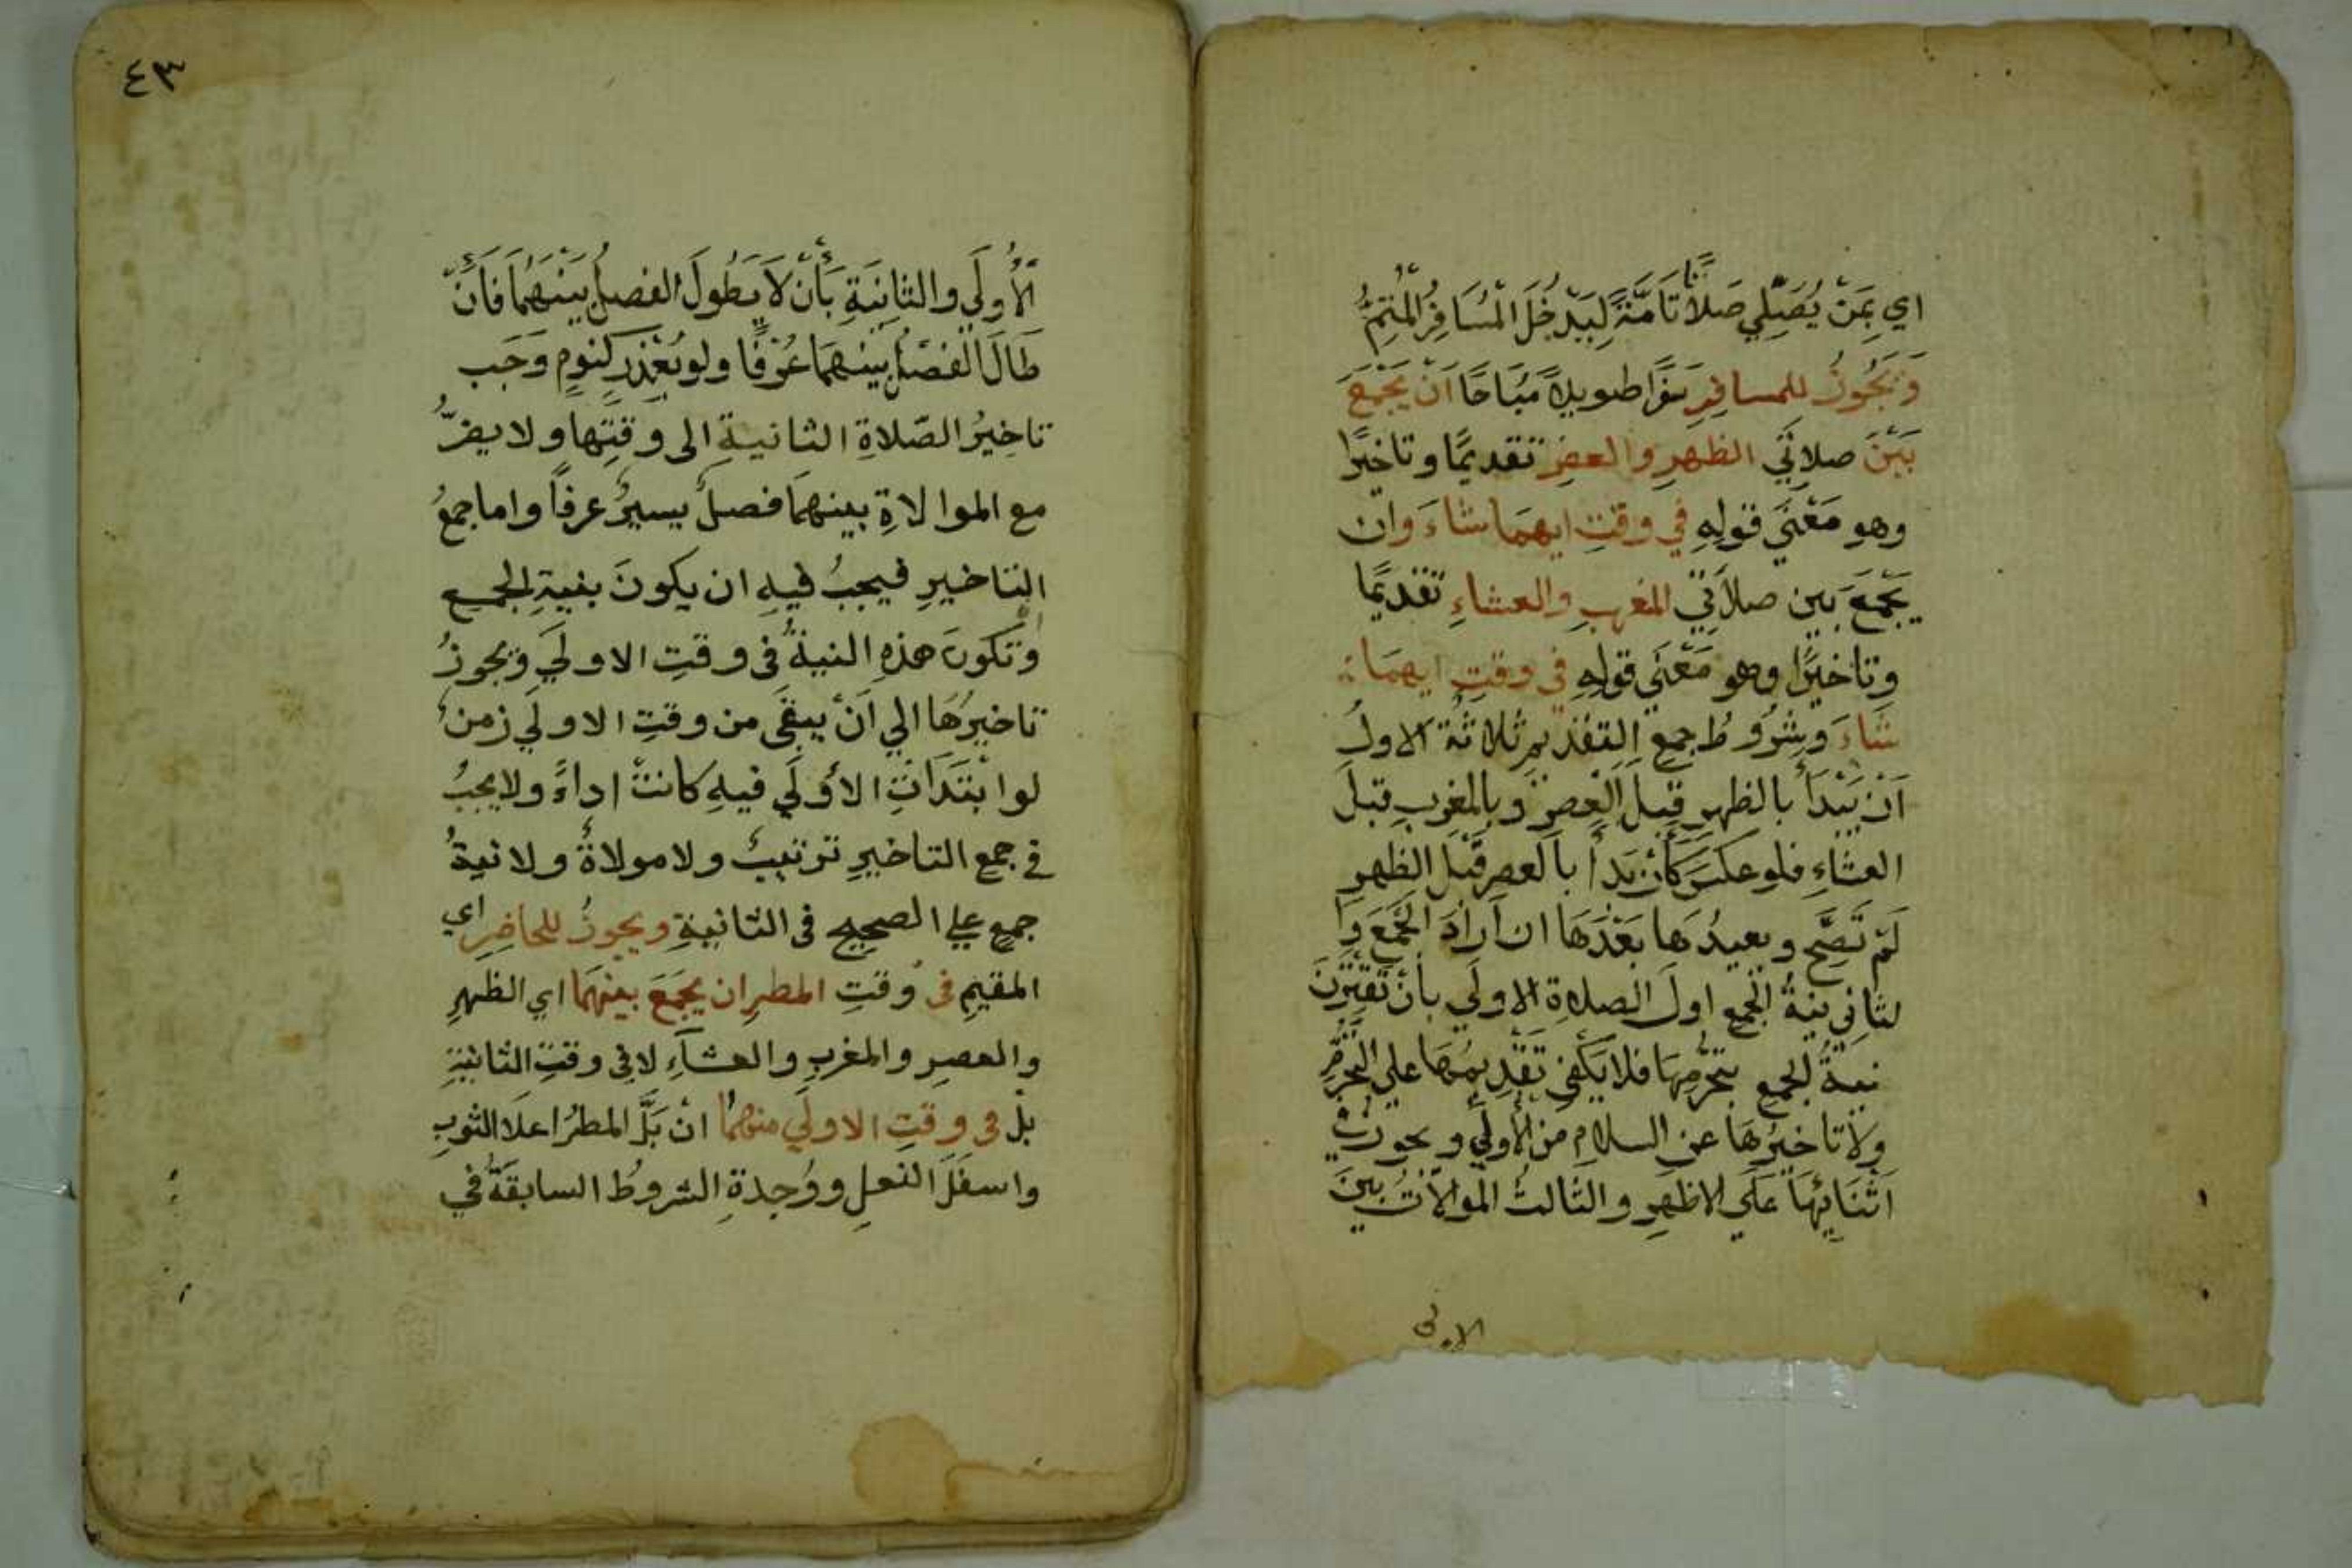 اي بِمَنْ يُصَلِّي صَلَاةً تَامَّةً لِيَدْخُلَ الْمُسَافِرُ الْمُتِمُّ
وَيَجُوزُ للمسافِرِ سفرًا طويلًا مُبَاحًا اَنْ يَجْمَعَ
بَيْنَ صلاتَي الظهرِ والعصرِ تقديمًا وتاخيرًا
وهو مَعْنَي قولِهِ في وقتِ ايهما شاءَ وان
يَجْمَعَ بين صلاتَي المغربِ والعشاءِ تقديمًا
وتاخيرًا وهو مَعْنَي قولهِ في وقتِ ايهمَا
شَاءَ وشُرُوطُ جمعِ التقديمِ ثلاثةٌ الاولُ
اَنْ يَبْدَأَ بالظهرِ قبلَ العصرِ وبالمغربِ قبلَ
العشاءِ فلو عكسَ كَأَنْ بَدَأَ بالعصرِ قَبْلَ الظهرِ
لَمْ تَصِحَّ ويعيدُهَا بَعْدَهَا ان اَرَادَ الجَمْعَ وا
لثانِي نيةُ الجمعِ اولَ الصلاةِ الاولَي بأنْ تَقْتَرِنَ
نيةُ الجمعِ بتحرُّمِهَا فلا يَكْفِي تَقْدِيمُهَا علي التَّحَرُّمِ
وَلَا تاخيرُهَا عن السلامِ من الأولَي ويجوز في
اَثْنَائِهَا عَلَي الاظهرِ والثالثُ الموالاتُ بينَ
الاولي
٤٣
الأُولَي والثانيَةِ بَأَنْ لَا يَطُولَ الفصلُ بَيْنَهُمَا فَأَنْ
طَالَ الْفَصْلُ بينهمَا عُرْفًا ولو بعُذْرٍ كنومٍ وَجَب
تاخيرُ الصّلاةِ الثانيةِ الى وقتِها ولا يضرُّ
مع الموالاةِ بينهمَا فصلٌ يسيرٌ عرفًا واما جمعُ
التاخيرِ فيجبُ فيهِ ان يكونَ بنيةِ الجمع
وتكونَ هذهِ النيةُ فى وقتِ الاولَي ويجوزُ
تاخيرُهَا الي اَنْ يبقَى من وقتِ الاولَي زمنٌ
لو ابْتَدَاَتِ الأُولَي فيهِ كانتْ اداءً ولا يجبُ
في جمعِ التاخيرِ ترتيبٌ ولا مولاةٌ ولا نيةُ
جمعٍ علي الصحيح فى الثانيةِ ويجوزُ للحاضِرِ اي
المقيمِ فى وقتِ المطرِ ان يَجْمَعَ بينهمَا اي الظهرِ
والعصرِ والمغربِ والعشآءِ لا في وقتِ الثانيةِ
بل في وقتِ الاولَي منهمَا انْ بَلَّ المطرُ اعلَا الثوبِ
واسفَلَ النعلِ ووُجِدةِ الشروطُ السابقَةُ في